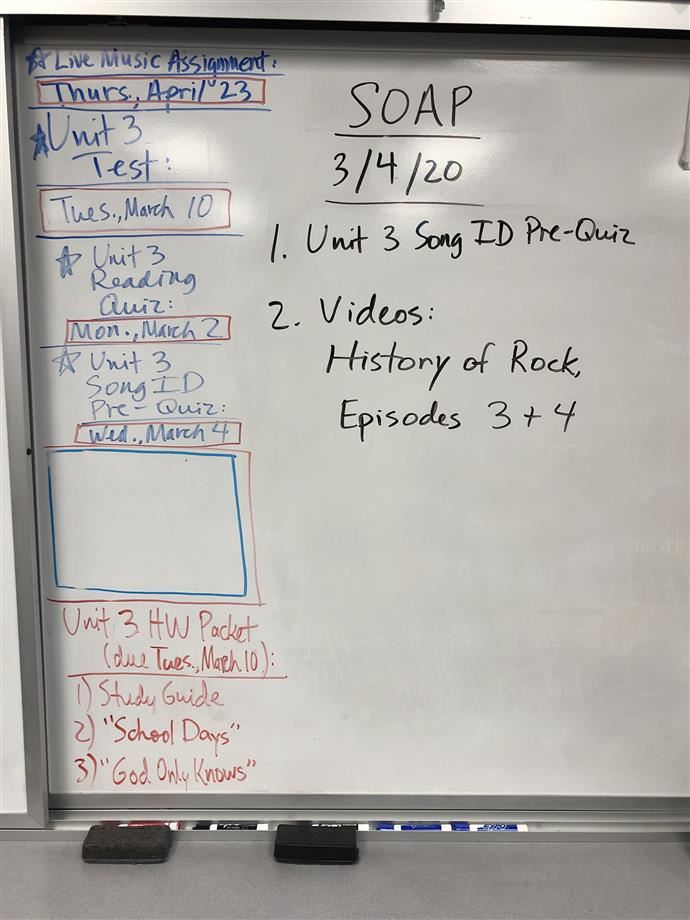 ☆ Live Music Assignment:
Thurs., April 23
☆ Unit 3
Test:
Tues., March 10
☆ Unit 3
Reading
Quiz:
Mon., March 2
☆ Unit 3
Song ID
Pre-Quiz:
Wed., March 4
Unit 3 HW Packet
(due Tues., March 10):
1) Study Guide
2) "School Days"
3) "God Only Knows"
SOAP
3/4/20
1. Unit 3 Song ID Pre-Quiz
2. Videos:
History of Rock,
Episodes 3 + 4